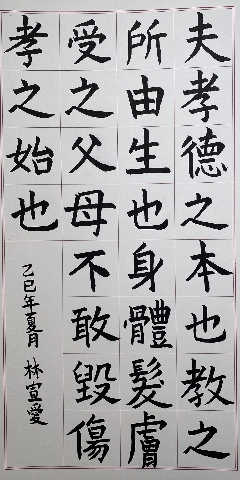 夫孝德之本也教之
所由生也身體髮膚
受之父母不敢毀傷
孝之始也
乙巳年夏月 林宣愛